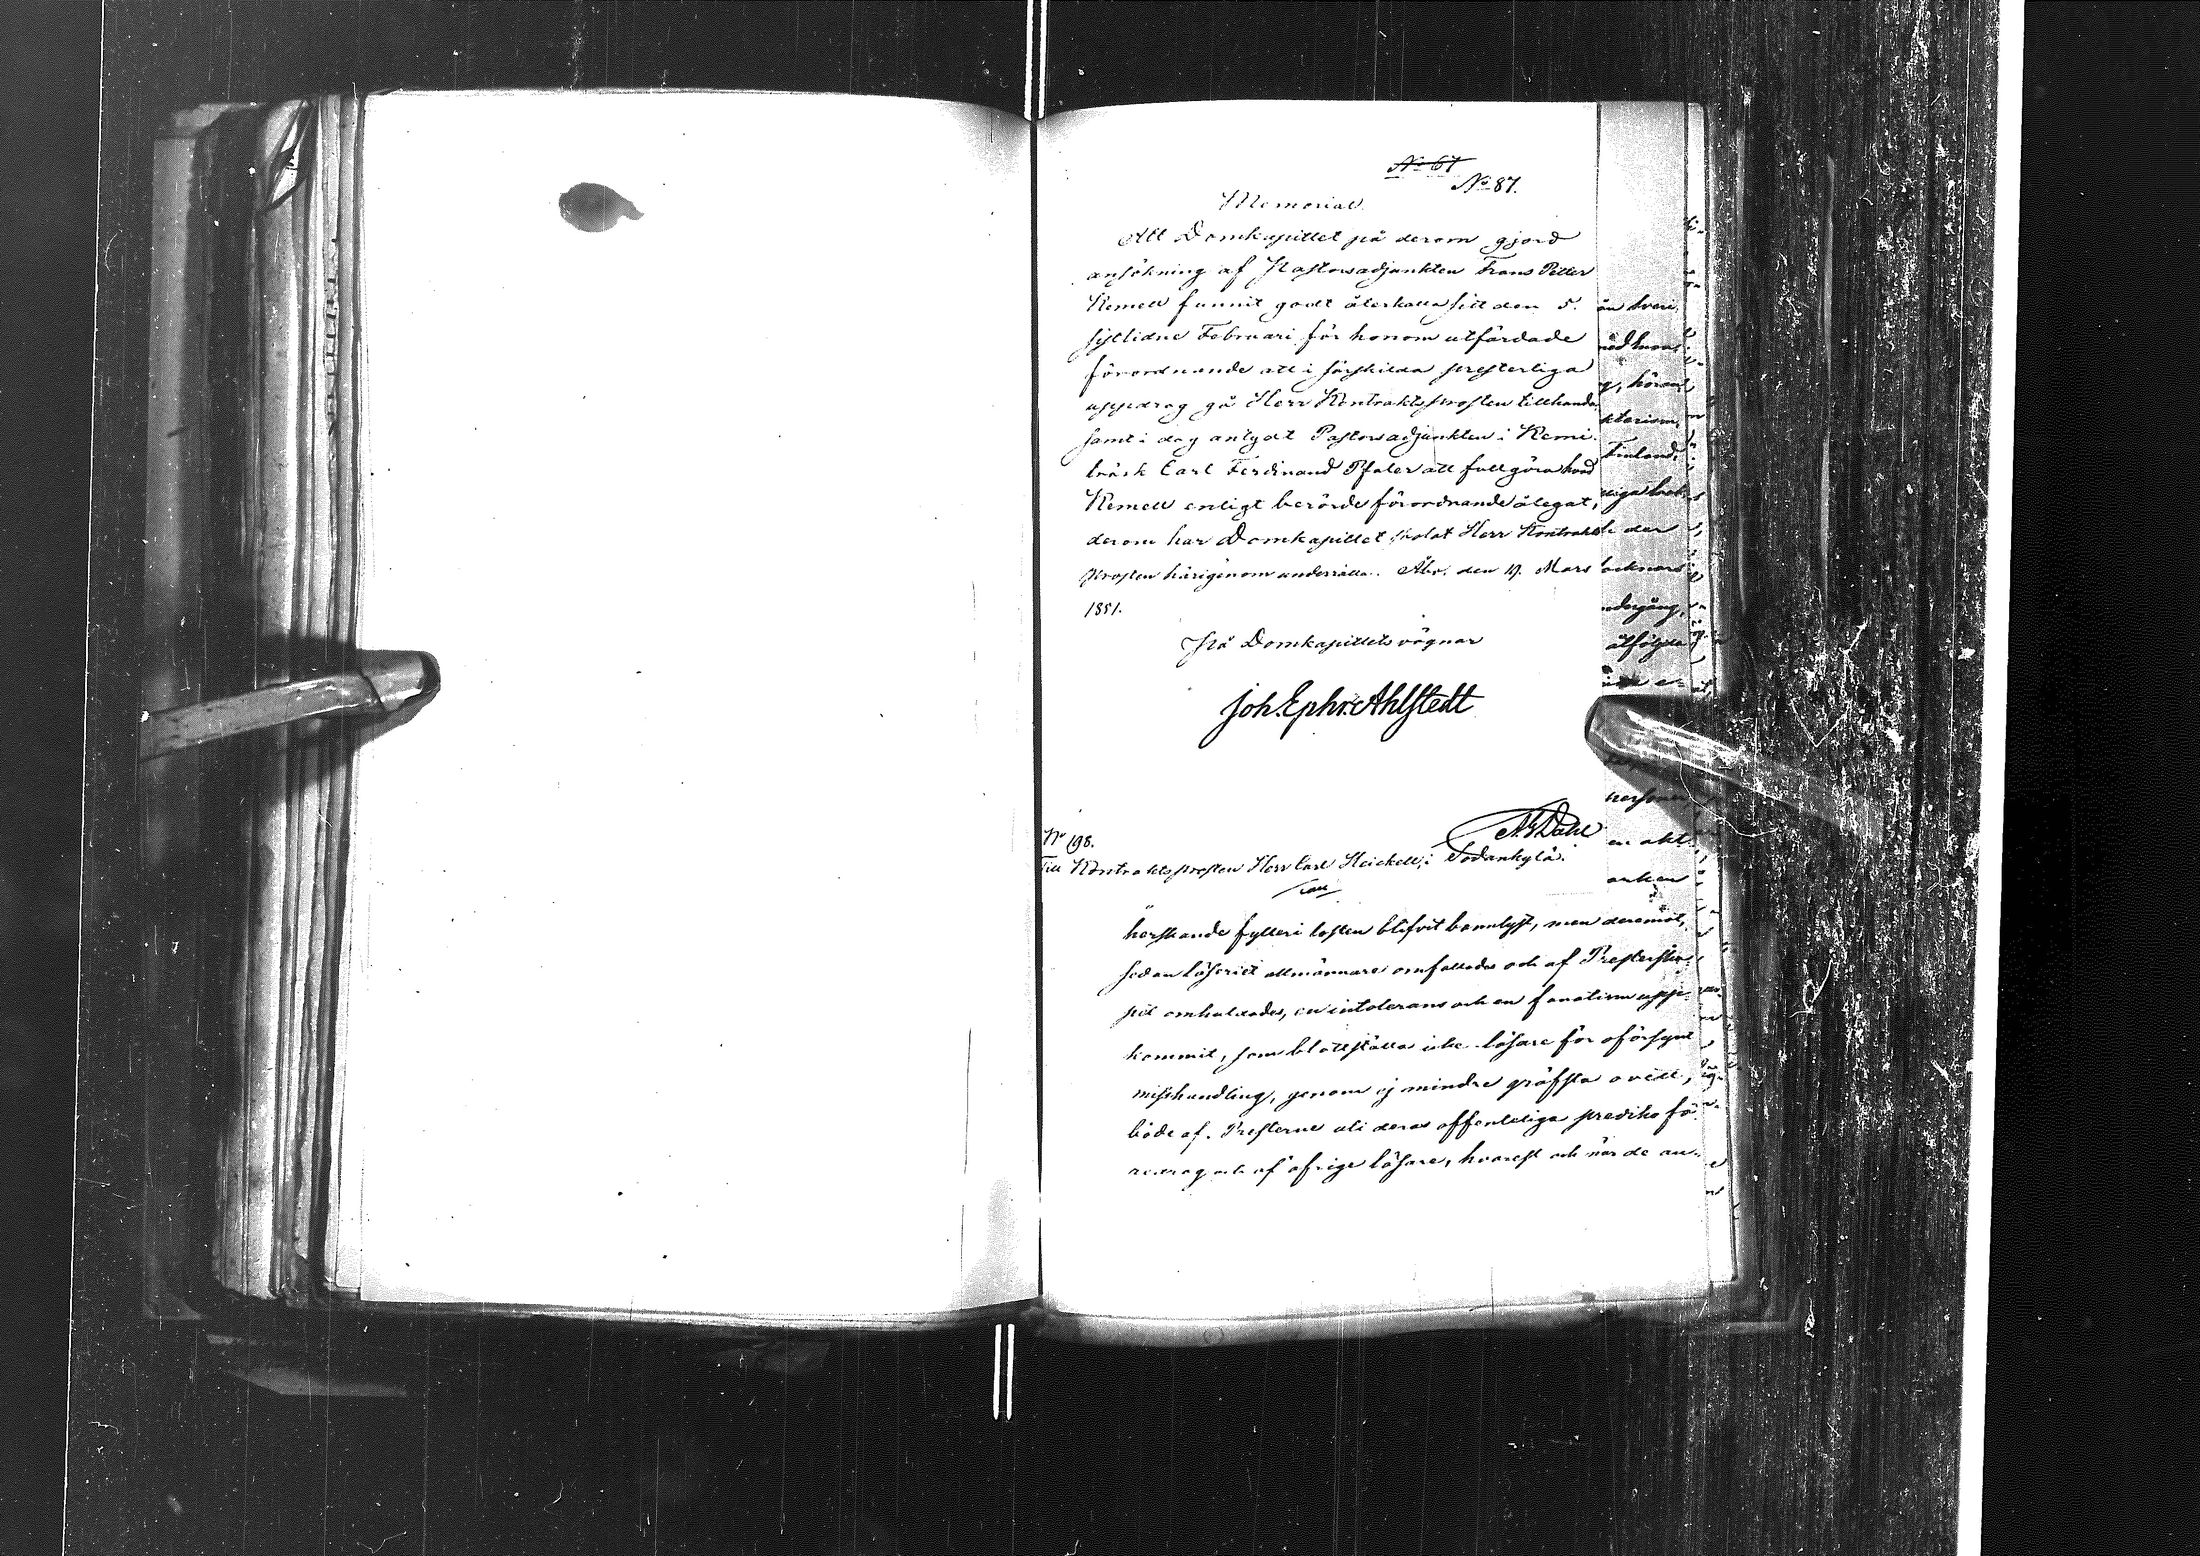 No 67
No 87.
Memorial.
Att Domkapitlet på derom gjord
ansökning af Pastorsadjunkten Frans Petter
Kemell funnit godt återkalla sitt den 5.
sistlidne Februari för honom utfärdade
förordnande att i särskilda presterliga
uppdrag gå Herr Kontraktsprosten tillhanda,
samt i dag antydt Pastorsadjunkten i Kemi
träsk Carl Ferdinand Pfaler att fullgöra hvad
Kemell enligt berörde förordnande ålegat,
derom har Domkapitlet skolat Herr Kontrakts
prosten härigenom underrätta. Åbo, den 19. Mars
1851.
På Domkapitlets vägnar
Joh. Ephr. Ahlstedt
No 198.
Till Kontraktsprosten Herr Carl Heickell, i Sodankylä.
herskande fylleri lasten blifvit bannlyst, men deremot,
sedan läseriet allmännare omfattades och af Presterska-
pet omhuldades, en intolerans och en fanatism upp-
kommit, som blottställa icke läsare för oförsynt
misshandling, genom ej mindre gräfsta ovett,
både af Presterne uti deras offenteliga prediko fö-
redrag och af öfrige läsare, hvarest och när de an-
än hvari
g, hörand
kterism,
Finland,
der
ndergång,
åtföljde
person
en akt